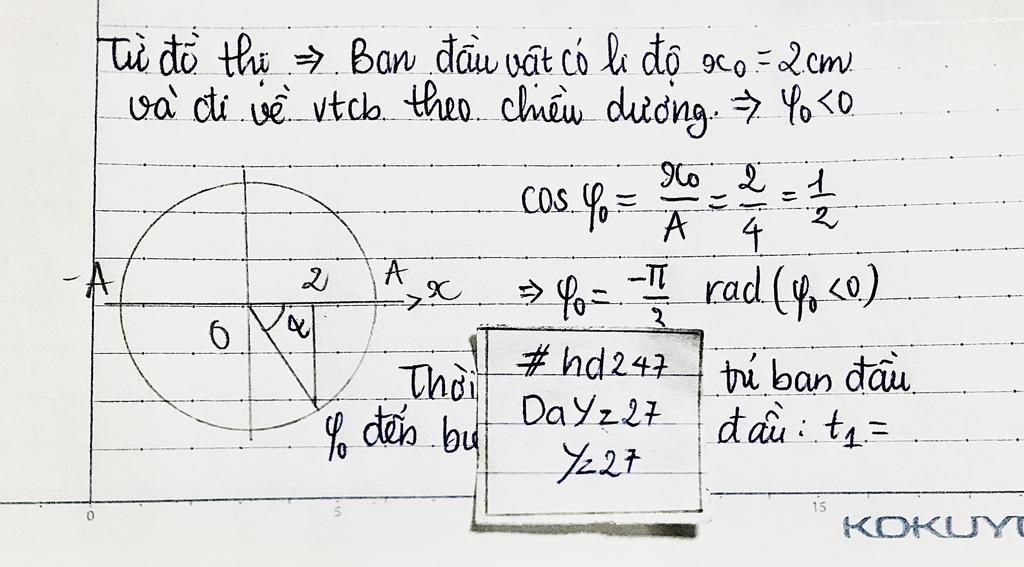 Từ đồ thị ⇒ Ban đầu vật có li độ x₀ = 2cm
và đi về vtcb theo chiều dương. ⇒ φ₀ < 0
cos φ₀ = x₀/A = 2/4 = 1/2
-A O α 2 A x
⇒ φ₀ = -π/3 rad (φ₀ < 0)
Thời
trí ban đầu
φ₀ đến
đầu: t₁ =
# hd247
DaYz27
Yz27
0 5 15
KOKUY